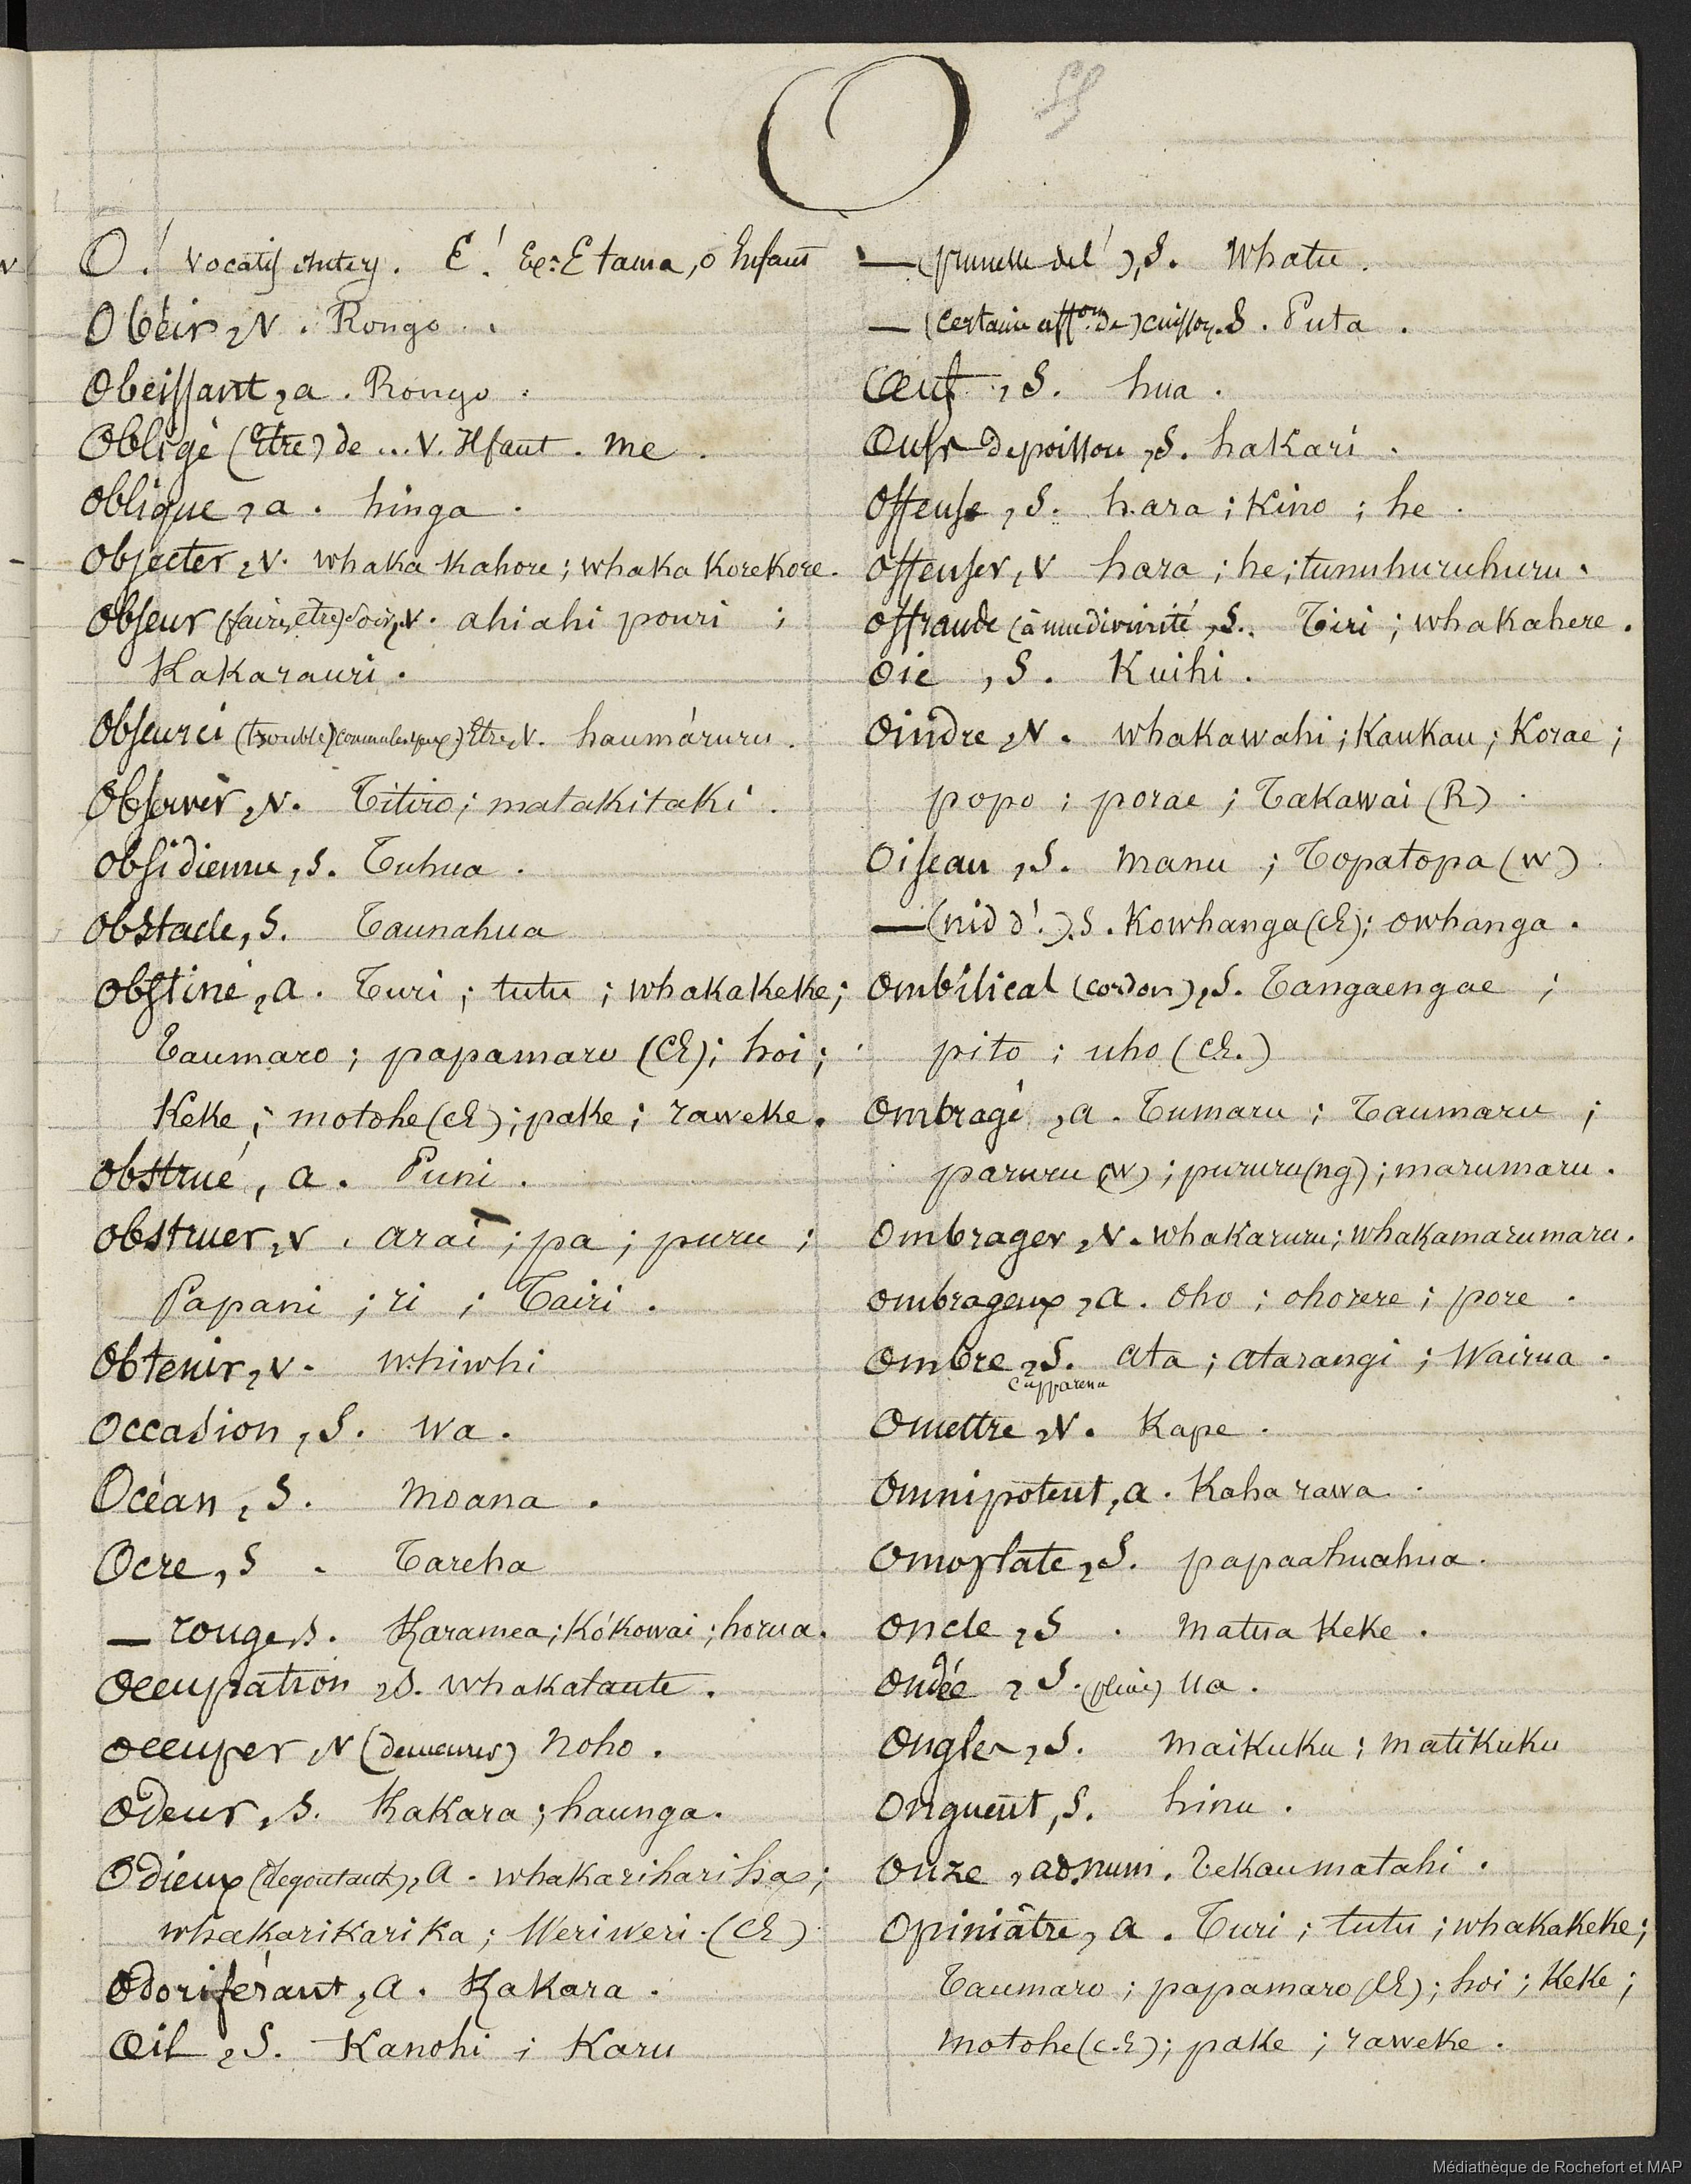 O
O! vocatif interj. E! Ex: E tama, o Enfant
Obéir, v. Rongo.
Obeissant, a. Rongo.
Obligé (Etre) de ... v. Il faut. me.
Oblique, a. hinga.
Objecter, v. whaka kahore; whaka korekore.
Obscur (faire, etre) soir, v. ahiahi pouri;
Kakarauri.
Obscurci (trouble) comme les yeux) Etre, v. haumáruru.
Observer, v. Titiro; matakitaki.
Obsidienne, s. Tuhua.
Obstacle, s. Taunahua
Obstiné, a. Turi; tutu; whakakeke;
Taumaro; papamaro (Ch); hoi;
Keke; motohe (ch); pake; raweke.
Obstrué, a. Puni.
Obstruer, v. arai; pa; puru;
Papani; ri; Tairi.
Obtenir, v. whiwhi
Occasion, s. wa.
Océan, s. moana.
Ocre, s. Tareha
— rouge, s. Karamea; Kókowai; horua.
Occupation, s. whakataute.
Occuper, v (demeurer) noho.
Odeur, s. Kakara; haunga.
Odieux (degoutant), a. whakarihariha;
whakarikarika; Weriweri (Ch)
Odoriférant, a. Kakara.
Œil, s. Kanohi; Karu
— (prunelle de l'), s. Whatu.
— (certaine affon de) cuisson, s. Puta.
Œuf, s. hua.
Œufs de poisson, s. hakari.
Offense, s. hara; Kino; he.
Offenser, v hara; he; tunuhuruhuru.
Offrande (à une divinité, s. Tiri; whakahere.
Oie, s. Kuihi.
Oindre, v. whakawahi; Kaukau; Korae;
popo; porae; Takawai (R).
Oiseau, s. manu; Topatopa (w)
— (nid d'.) s. Kowhanga (Ch); owhanga.
Ombilical (cordon), s. Tangaengae;
pito; uho (ch.)
Ombragé, a. Tumaru; Taumaru;
paruru (w); pururu (ng); marumaru.
Ombrager, v. whakaruru; whakamarumaru.
Ombrageux, a. oho; ohorere; pore.
Ombre, s. ata; atarangi; Wairua.
Omettre, v. Kape.
Omnipotent, a. Kaha rawa.
Omoplate, s. papaahuahua.
Oncle, s. matua Keke.
Ondée, s. (pluie) ua.
Ongles, s. maikuku; matikuku
Onguent, s. hinu.
Onze, ad. num. Tekaumatahi.
Opiniâtre, a. Turi; tutu; whakakeke;
Taumaro; papamaro (Ch); hoi; Keke;
motohe (ch); pake; raweke.
Médiathèque de Rochefort et MAP